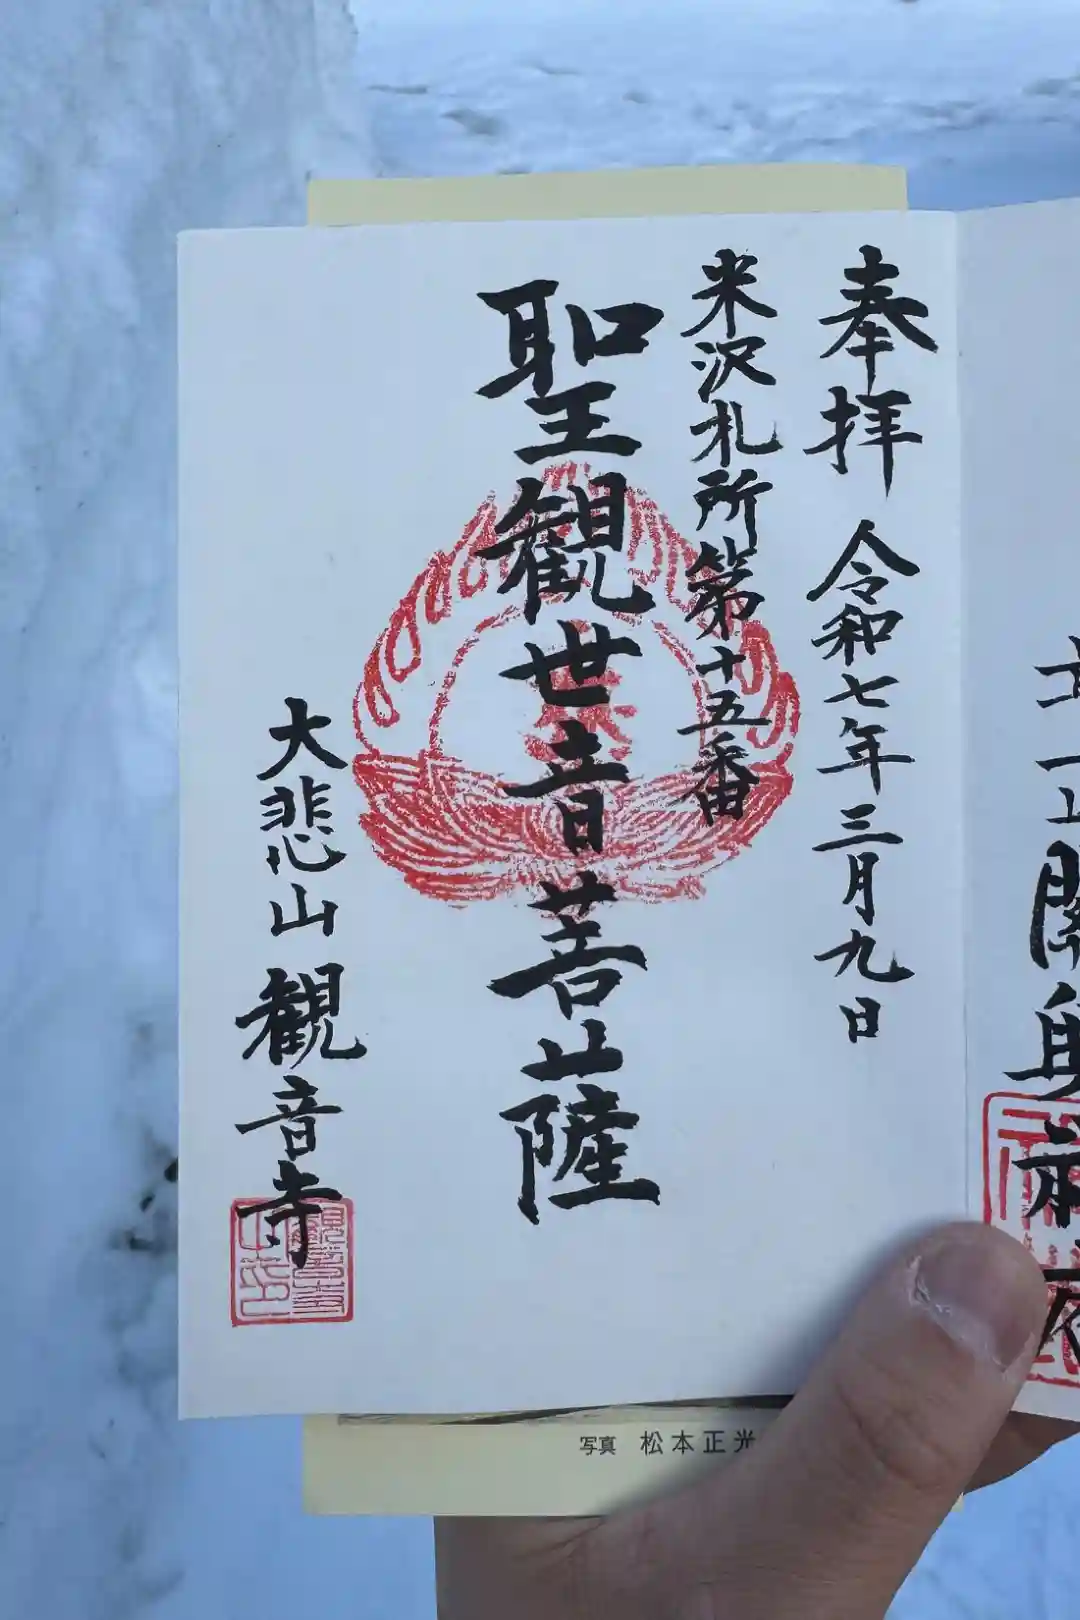 奉拝 令和七年三月九日
米沢札所第十五番
聖観世音菩薩
大悲山 観音寺
写真 松本正光